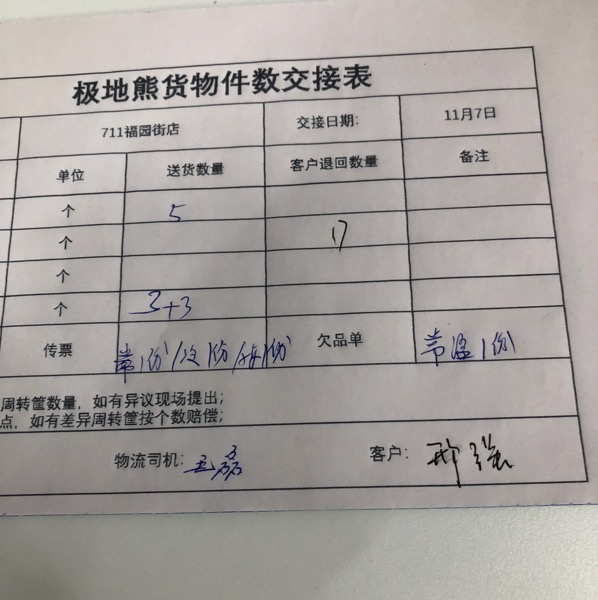 极地熊货物件数交接表
711福园街店 交接日期: 11月7日
单位 送货数量 客户退回数量 备注
个 5
个 17
个
个 3+3
传票 常1份/ 份/ 1份 欠品单 常温1份
周转筐数量，如有异议现场提出；
点，如有差异周转筐按个数赔偿；
物流司机: 王磊 客户: 邢强